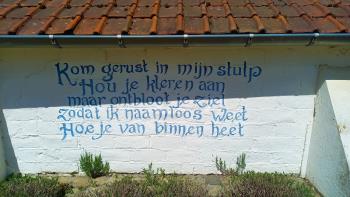 Kom gerust in mijn stulp
Hou je kleren aan
maar ontbloot je ziel
Zodat ik naamloos weet
Hoe je van binnen heet